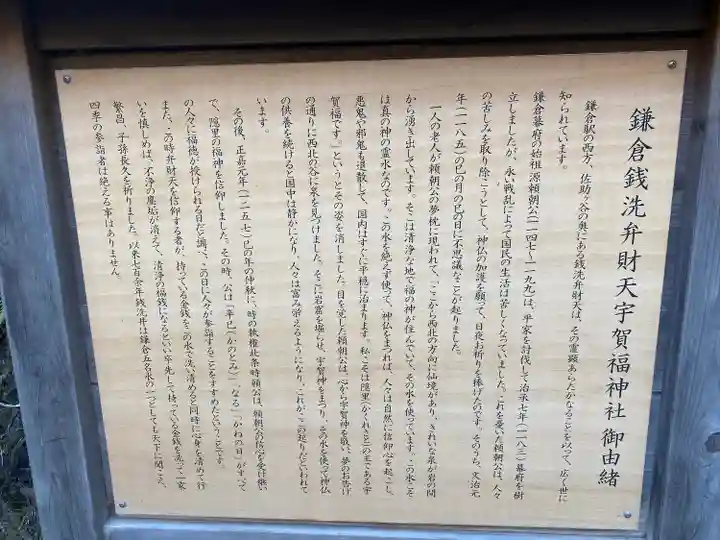 鎌倉銭洗弁財天宇賀福神社御由緒
鎌倉駅の西方、佐助ヶ谷の奥にある銭洗弁財天は、その霊顕あらたかなることを以って、広く世に
知られています。
鎌倉幕府の始祖源頼朝公(一一四七~一一九九)は、平家を討伐して治承七年(一一八三)幕府を樹
立しましたが、永い戦乱によって国民の生活は苦しくなっていました。これを憂いた頼朝公は、人々
の苦しみを取り除こうとして、神仏の加護を願って、日夜お祈りを捧げたのです。そのうち、文治元
年(一一八五)の巳の月の巳の日に不思議なことが起りました。
一人の老人が頼朝公の夢枕に現われて、「ここから西北の方向に仙境があり、きれいな泉が岩の間
から湧き出しています。そこは清浄な地で福の神が住んでいて、その水を使っています。この水こそ
は真の神の霊水なのです。この水を絶えず使って、神仏をまつれば、人々は自然に信仰心を起こし、
悪鬼や邪鬼も退散して、国内はすぐに平穏に治まります。私こそは隠里(かくれざと)の主である宇
賀福です。」というとその姿を消しました。目を覚した頼朝公は、心から宇賀神を敬い、夢のお告げ
の通りに西北の谷に泉を見つけました。そこに岩窟を掘らせ、宇賀神をまつり、その水を使って神仏
の供養を続けると国中は静かになり、人々は富み栄えるようになり、これが、この起りだといわれて
います。
その後、正嘉元年(一二五七)巳の年の仲秋に、時の執権北条時頼公は、頼朝公の信心を受け継い
で、隠里の福神を信仰しました。その時、公は「辛巳(かのとみ)」、「なる」「かねの日」がすべて
の人々に福徳が授けられる日だと謂って、この日に人々が参詣することをすすめたということです。
また、この時弁財天を信仰する者が、持っている金銭をこの水で洗い清めると同時に心身を清めて行
いを慎しめば、不浄の塵垢が消えて、清浄の福銭になるといい率先して持っている金銭を洗って一家
繁昌、子孫長久を祈りました。以来七百余年銭洗井は鎌倉五名水の一つとしても天下に聞こえ、
四季の参詣者は絶える事はありません。